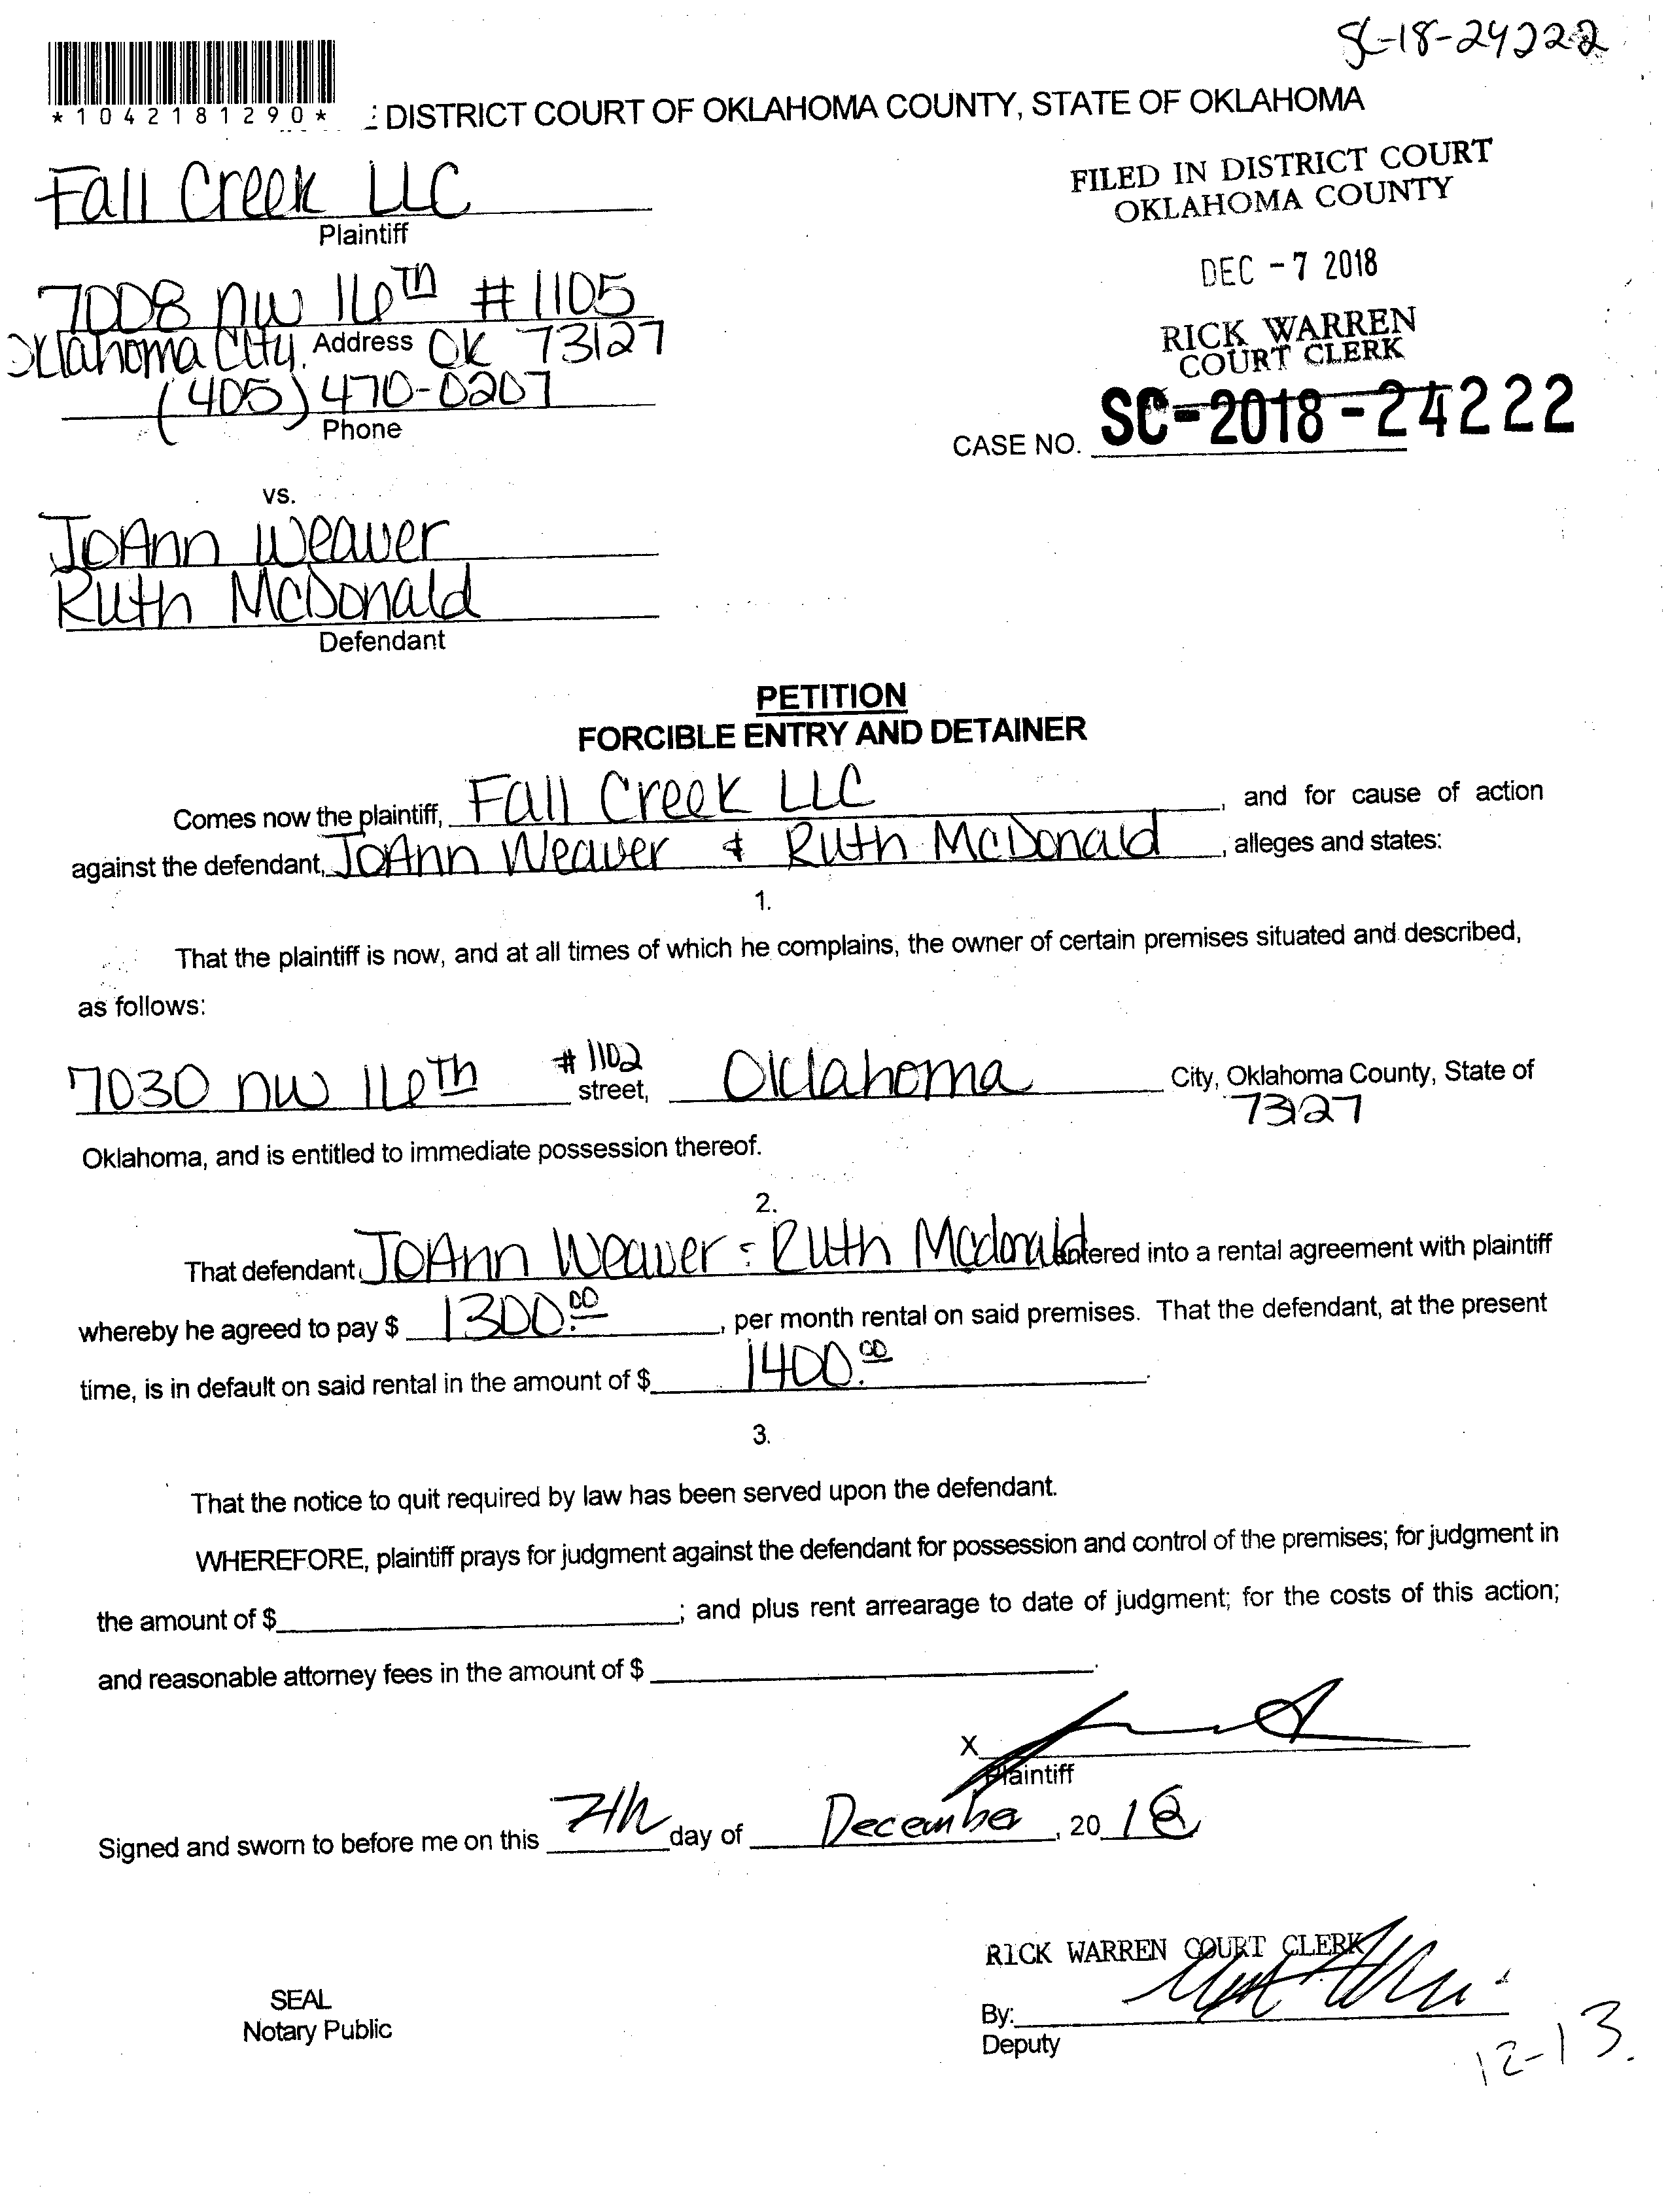 SC-18-24222
*1042181290*
: DISTRICT COURT OF OKLAHOMA COUNTY, STATE OF OKLAHOMA
Fall Creek LLC
Plaintiff
FILED IN DISTRICT COURT
OKLAHOMA COUNTY
DEC -7 2018
RICK WARREN
COURT CLERK
7008 NW 16th #1105
Oklahoma City, Address OK 73127
(405) 470-0207
Phone
CASE NO. SC-2018-24222
vs.
JoAnn Weaver
Ruth McDonald
Defendant
PETITION
FORCIBLE ENTRY AND DETAINER
Comes now the plaintiff, Fall Creek LLC, and for cause of action
against the defendant, JoAnn Weaver & Ruth McDonald, alleges and states:
1.
That the plaintiff is now, and at all times of which he complains, the owner of certain premises situated and described,
as follows:
7030 NW 16th #1102 street, Oklahoma City, Oklahoma County, State of
73127
Oklahoma, and is entitled to immediate possession thereof.
2.
That defendant, JoAnn Weaver : Ruth Mcdonald entered into a rental agreement with plaintiff
whereby he agreed to pay $ 1300.00, per month rental on said premises. That the defendant, at the present
time, is in default on said rental in the amount of $ 1400.00.
3.
That the notice to quit required by law has been served upon the defendant.
WHEREFORE, plaintiff prays for judgment against the defendant for possession and control of the premises; for judgment in
the amount of $; and plus rent arrearage to date of judgment; for the costs of this action;
and reasonable attorney fees in the amount of $.
X
Plaintiff
Signed and sworn to before me on this 7th day of December, 2018
RICK WARREN COURT CLERK
SEAL
Notary Public
By:
Deputy
12-13.